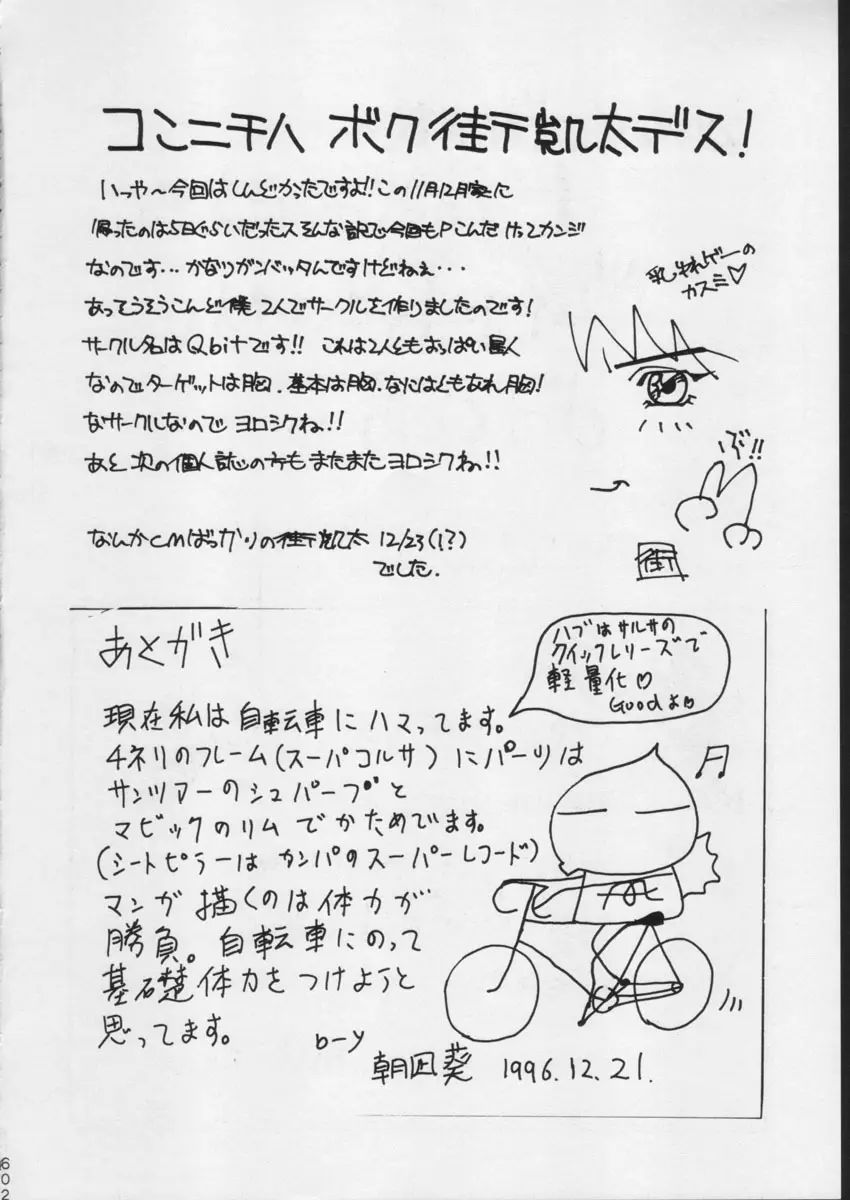 コンニチハ ボク街テ凱太デス!
いっや〜今回はしんどかったですよ!!この11月12月家に
帰ったのは5日ぐらいだったスそんな訳で今回もPこんだけってカンジ
なのです…かなりガンバッタんですけどねぇ・・・
あってうそうそこんど僕2人でサークルを作りましたのです!
サークル名はQbitです!! これは2人ともおっぱい星人
なのでターゲットは胸.基本は胸.なにはともあれ胸!
なサークルなので ヨロシクね!!
あと 次の個人誌の方もまたまたヨロシクねっ!!
なんかCMばっかりの街テ凱太 12/23(!?)
でした.
乳ゆれゲーの
カスミ♡
ぷ!!
街テ
あとがき
ハブはサルサの
クイックレリーズで
軽量化♡
Goodよ♡
現在私は自転車にハマってます。
チネリのフレーム(スーパコルサ)にパーツは
サンツアーのシュパーブと
マビックのリムでかためてます。
(シートピラーはカンパのスーパーレコード)
マンガ描くのは体力が
勝負。自転車にのって
基礎体力をつけようと
思ってます。
by
朝凪葵 1996.12.21.
♫
602